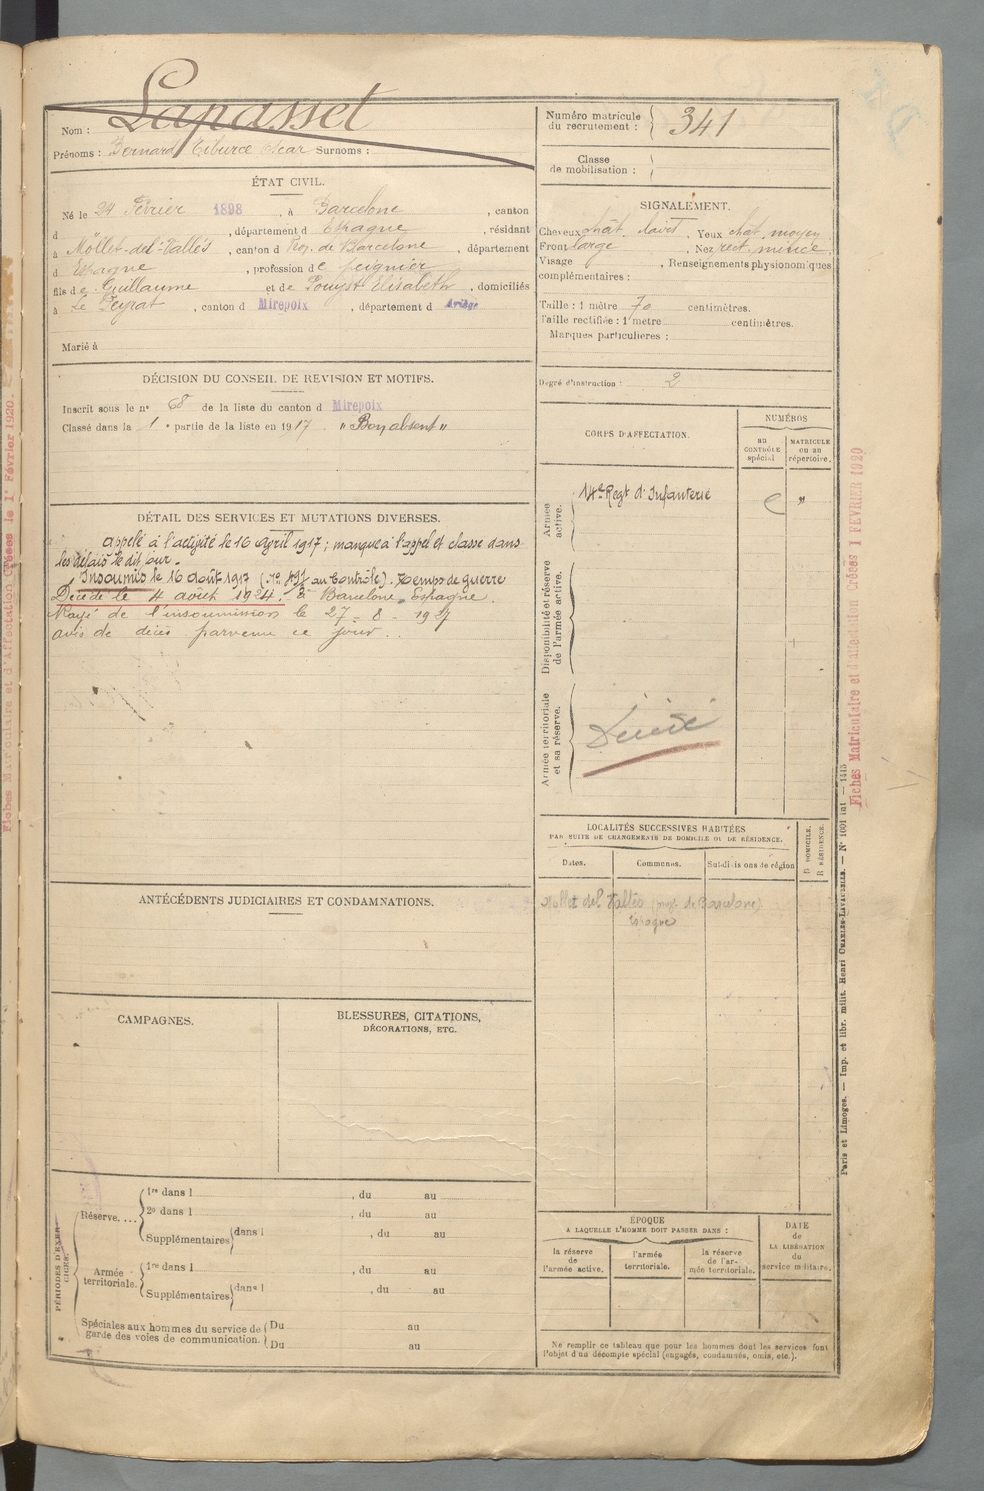 Nom : Lapasset
Prénoms : Bernard Tiburce Oscar Surnoms :
ÉTAT CIVIL.
Né le 24 Février 1898, à Barcelone, canton
d , département d Espagne, résidant
à Möllet-del-Vallés, canton d Prov. de Barcelone, département
d Espagne, profession de peignier
fils de Guillaume et de Pouyst Elisabeth, domiciliés
à Le Peyrat, canton d Mirepoix, département d Ariège
Marié à
DÉCISION DU CONSEIL DE REVISION ET MOTIFS.
Inscrit sous le n° 8 de la liste du canton d Mirepoix
Classé dans la 1e partie de la liste en 1917. "Bon absent"
DÉTAIL DES SERVICES ET MUTATIONS DIVERSES.
appelé à l'activité le 16 avril 1917; manque à l'appel et classe dans
les délais le dit jour.
Insoumis le 16 août 1917 (au Contrôle). Temps de guerre
Décédé le 4 août 1924. à Barcelone Espagne.
Rayé de l'insoumission le 27-8-1927
avis de décès parvenu ce jour.
ANTÉCÉDENTS JUDICIAIRES ET CONDAMNATIONS.
CAMPAGNES.
BLESSURES, CITATIONS,
DÉCORATIONS, ETC.
PÉRIODES D'EXERCICES.
Réserve....
1re dans l , du au
2e dans l , du au
Supplémentaires dans l , du au
Armée territoriale.
1re dans l , du au
Supplémentaires dans l , du au
Spéciales aux hommes du service de garde des voies de communication.
Du au
Du au
Numéro matricule du recrutement : 341
Classe de mobilisation :
SIGNALEMENT.
Cheveux chât. clair, Yeux chât. moyen
Front large, Nez rect. mince,
Visage , Renseignements physionomiques
complémentaires :
Taille : 1 mètre 70 centimètres.
Taille rectifiée : 1 mètre centimètres.
Marques particulières :
Degré d'instruction : 2
CORPS D'AFFECTATION.
NUMÉROS
au CONTRÔLE spécial
MATRICULE ou au répertoire.
Armée active.
14e Regt d'Infanterie "
Disponibilité et réserve de l'armée active.
Armée territoriale et sa réserve.
Décédé
LOCALITÉS SUCCESSIVES HABITÉES
PAR SUITE DE CHANGEMENTS DE DOMICILE OU DE RÉSIDENCE.
D DOMICILE.
R RÉSIDENCE.
Dates. Communes. Subdivisions de région
Mollet del Vallès (prov. de Barcelone)
Espagne
ÉPOQUE
A LAQUELLE L'HOMME DOIT PASSER DANS :
la réserve de l'armée active.
l'armée territoriale.
la réserve de l'armée territoriale.
DATE de LA LIBÉRATION du service militaire.
Ne remplir ce tableau que pour les hommes dont les services font
l'objet d'un décompte spécial (engagés, condamnés, omis, etc.).
Fiches Matriculaire et d'affectation Créées 1 FEVRIER 1920
Paris et Limoges. — Imp. et libr. milit. Henri CHARLES-LAVAUZELLE. — N° 1001 int — 1415
Fiches Matriculaire et d'Affectation Créées le 1er Février 1920.